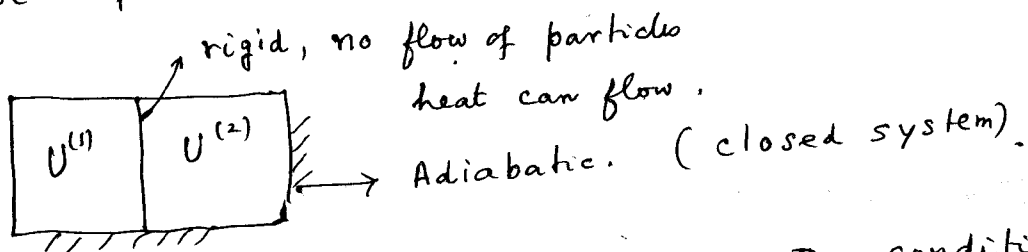 rigid, no flow of particles
heat can flow.
U⁽¹⁾ U⁽²⁾
Adiabatic. (closed system).